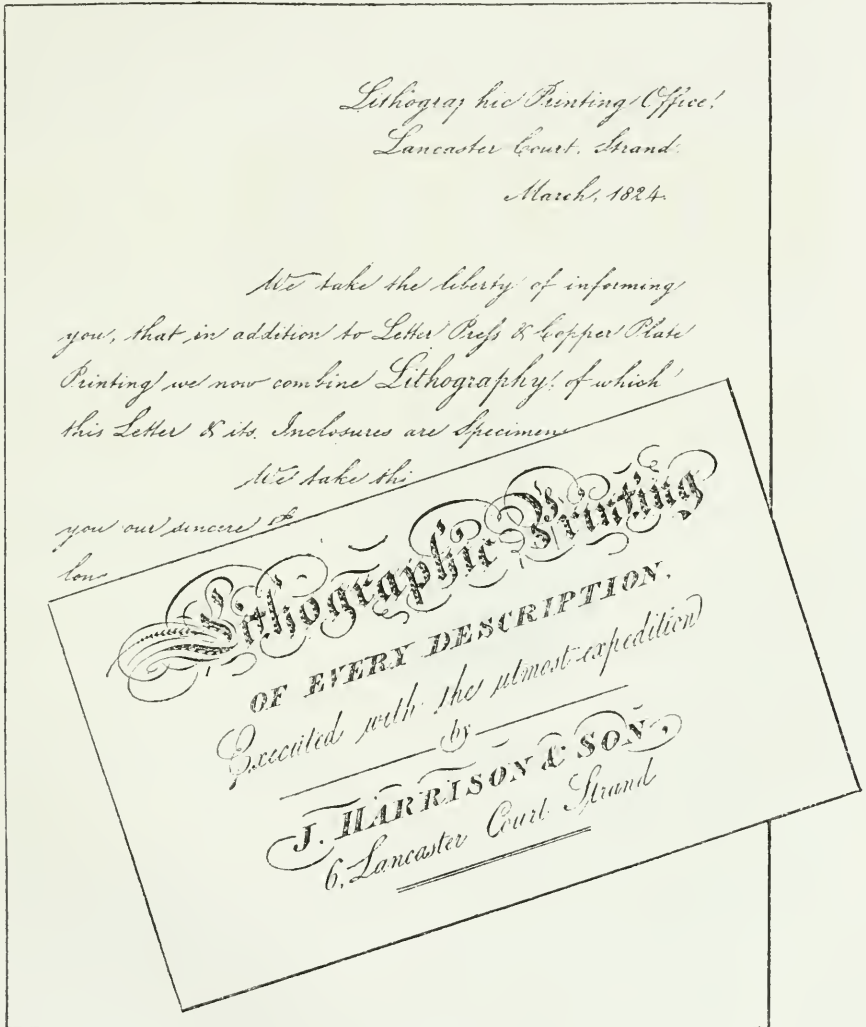 Lithographic Printing Office!
Lancaster Court. Strand.
March, 1824.
We take the liberty of informing
you, that in addition to Letter Press & Copper Plate
Printing we now combine Lithography! of which
this Letter & its Inclosures are Specimens
We take thi
you our sincere th
long
Lithographic Printing
OF EVERY DESCRIPTION,
Executed with the utmost expedition
by
J. HARRISON & SON,
6, Lancaster Court Strand